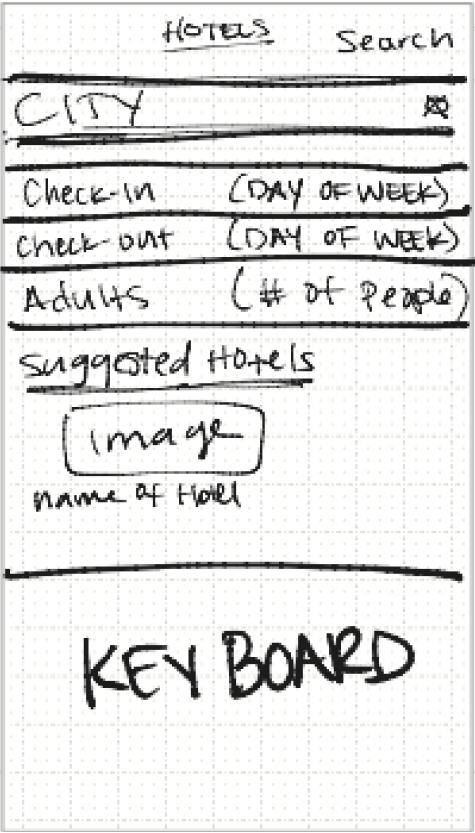 HOTELS Search
CITY
Check-in (DAY OF WEEK)
Check-out (DAY OF WEEK)
Adults (# of People)
Suggested Hotels
image
name of Hotel
KEYBOARD